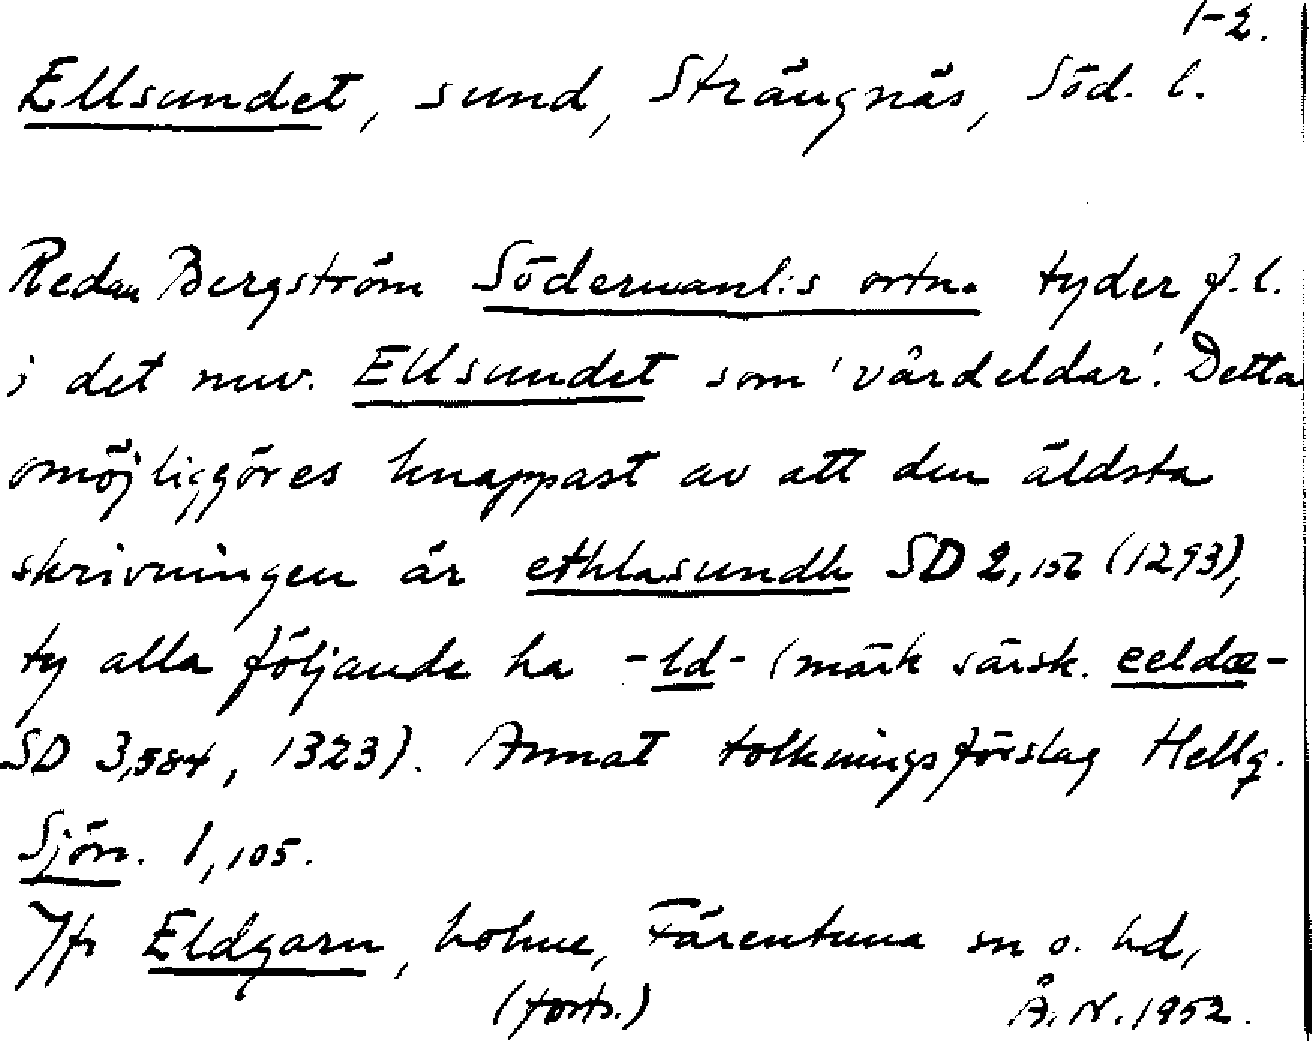 1-2.
Ellsundet, sund, Strängnäs, Söd. l.
Redan Bergström Södermanl:s ortn. tyder f. l.
i det nuv. Ellsundet som 'vårdeldar'. Detta
omöjliggöres knappast av att den äldsta
skrivningen är ethlasundh SD 2,156 (1293),
ty alla följande ha -ld- (märk särsk. eeldæ-
SD 3,584, 1323). Annat tolkningsförslag Hellq.
Sjön. 1,105.
Jfr Eldgarn, holme, Färentuna sn o. hd,
(forts.) Å. N. 1952.